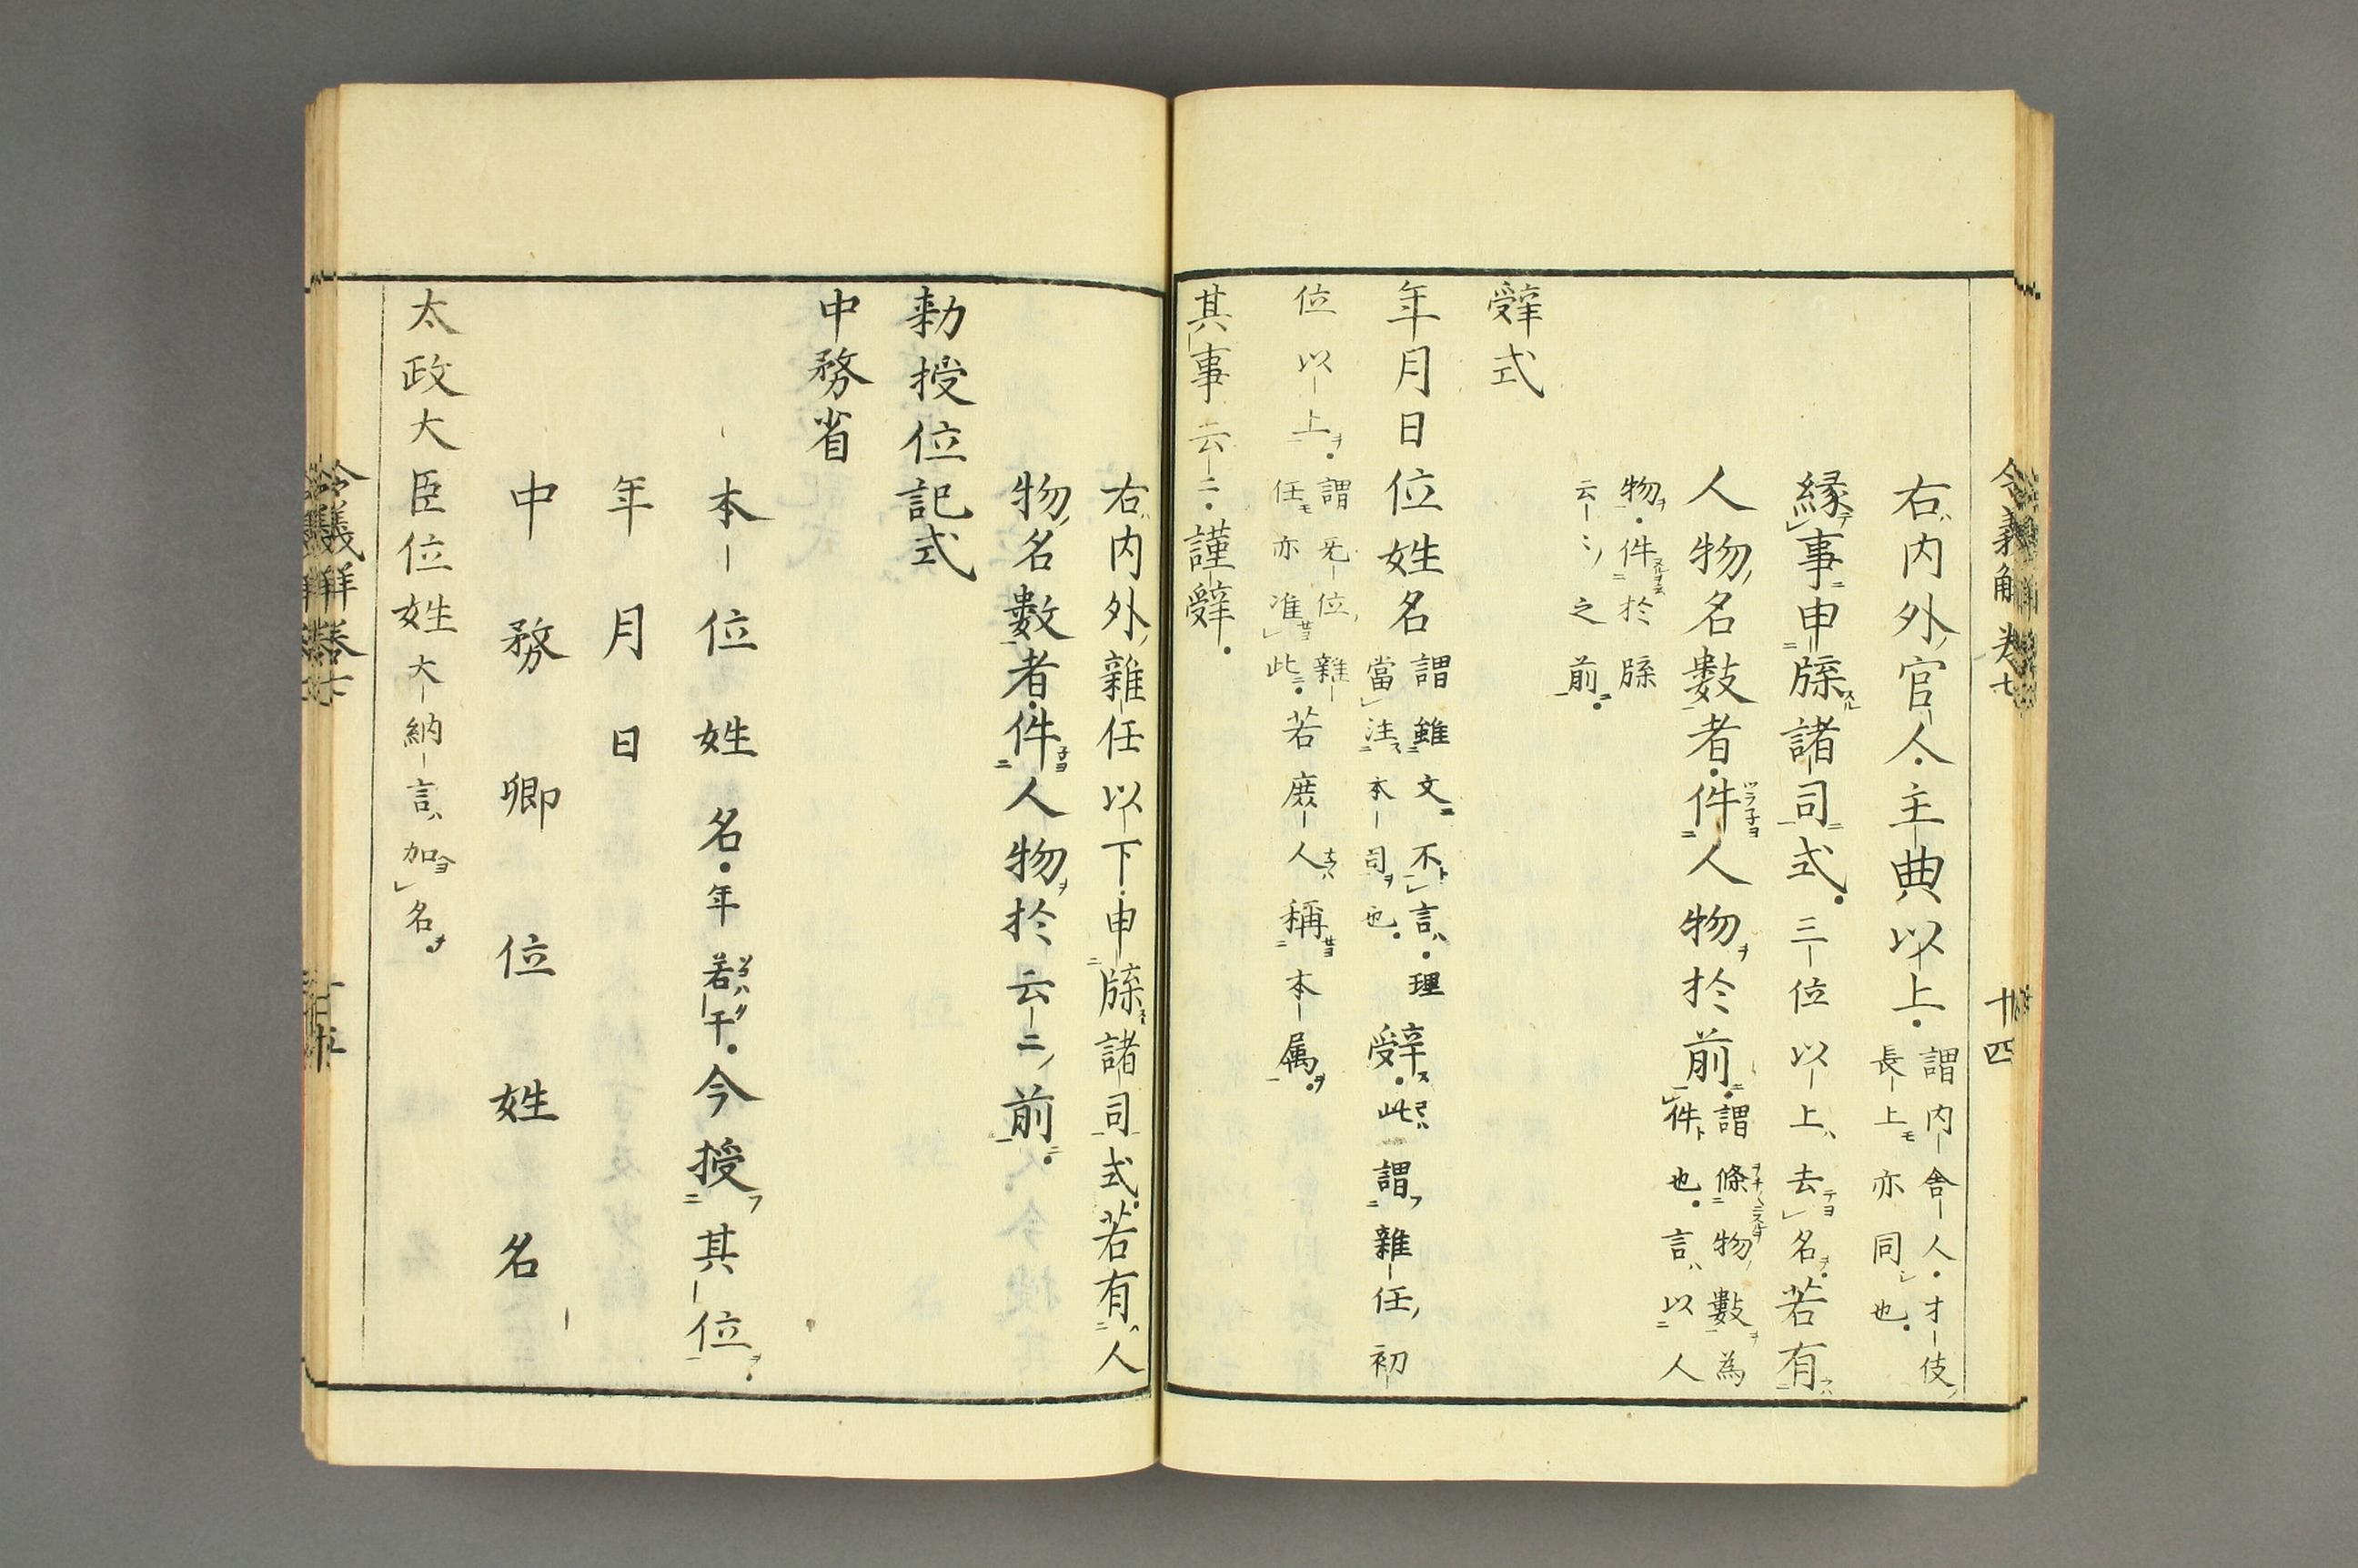 右内外官人主典以上謂内舎人才伎長上亦同也
縁事申牒諸司式三位以上去名若有
人物名數者件人物於前謂條物數為件也言以人
物件於牒云々之前
辤式
年月日位姓名謂雖文不言理當注本司也辤此謂雜任初
位以上謂旡位雜任亦准此若庶人稱本属
其事云二謹辤
右内外雜任以下申牒諸司式若有人
物名數者件人物於云二前
勅授位記式
中務省
本位姓名年若干今授其位
年月日
中務卿位姓名
太政大臣位姓大納言加名
令義解卷七
十四